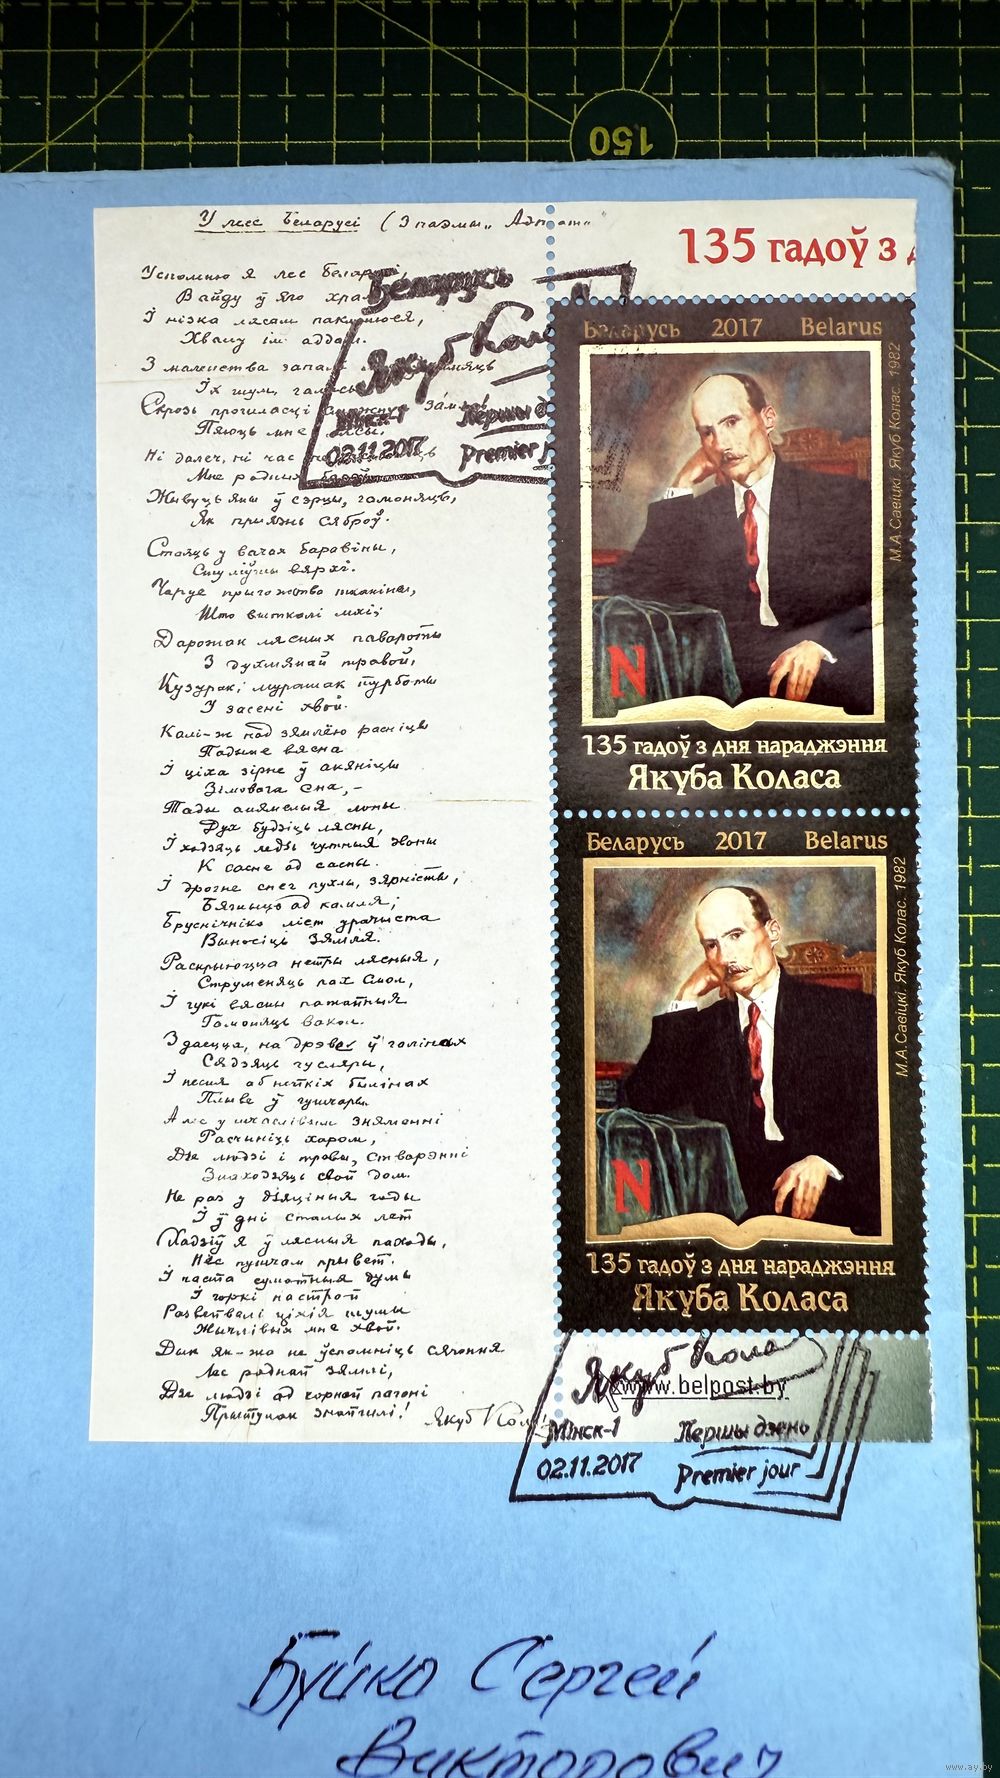 150
У лесе Беларусі (З паэмы „Адплата“
135 гадоў з
Успомню я лес беларускі,
Вайду ў яго храм
І нізка лясам пакланюся,
Хвалу ім аддам.
З маленства запалі
Іх шум, галасы
Скрозь прогаласці
Пяюць мне лясы.
Ні далеч, ні час
Мне родных
Жывуць яны ў сэрцы, гамоняць,
Як прыязнь сяброў.
Стаяць у вачах баравіны,
Стуліўшы вярхі.
Чаруе прыгожство тканіны,
Што выткалі мхі;
Дарожак лясных павароты
З духмянай травой,
Кузурак, мурашак турботы
У засені хвой.
Калі-ж над зямлёю расніцы
Падыме вясна
І ціха зірне ў акяніцы
Зімовага сна, –
Тады анямелыя лоны
Дух будзіць лясны,
І ходзяць ледзь чутныя звоны
К сасне ад сасны.
І дрогне снег пухлы, зярністы,
Бягныцо ад камля;
Бруснічніка ліст урачыста
Выносіць зямля.
Раскрыюцца нетры лясныя,
Струменяць пах смол,
І гукі вясны
Гамоняць вакол.
Здаецца, на дрэвах ў галінах
Сядзяць гусляры,
І песня аб нейкіх былінах
Плыве ў гушчары.
А лес у шчаслівым зняменні
Расчыніць харом,
Дзе людзі і травы, стварэнні
Знаходзяць свой дом.
Не раз у дзяціныя годы
І ў дні сталых лет
Хадзіў я ў лясныя паходы,
Нёс пушчам прывет.
І часта сумотныя думы
І горкі настрой
Развейвалі ціхія шумы
Жычлівых мне хвой.
Дык як-жа не ўспомніць сягоння
Лес роднай зямлі,
Дзе людзі ад чорнай пагоні
Прытулак знайшлі!
Якуб Колас
Беларусь
Якуб Колас
Мінск-1
Першы д
02.11.2017
Premier j
Беларусь 2017 Belarus
М.А.Савіцкі. Якуб Колас. 1982
N
135 гадоў з дня нараджэння
Якуба Коласа
Беларусь 2017 Belarus
М.А.Савіцкі. Якуб Колас. 1982
N
135 гадоў з дня нараджэння
Якуба Коласа
Якуб Кола
www.belpost.by
Мінск-1
Першы дзень
02.11.2017
Premier jour
Буйко Сергей
Викторович
www.ay.by